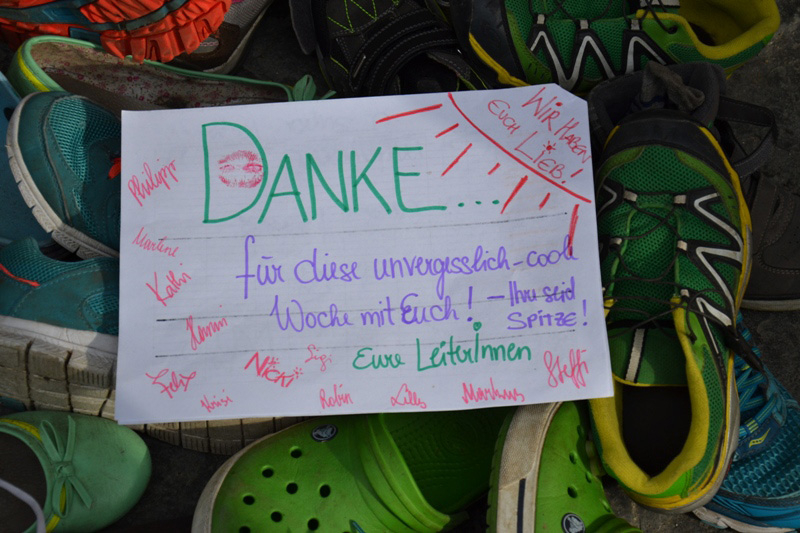 WIR HABEN
EUCH LIEB!
DANKE...
für diese unvergesslich-coole
Woche mit Euch! – Ihr seid
SPITZE!
Eure LeiterInnen
Philipp
Martine
Kathi
Felix
Krisi
NICKI
Sigi
Robin
Markus
Steffi